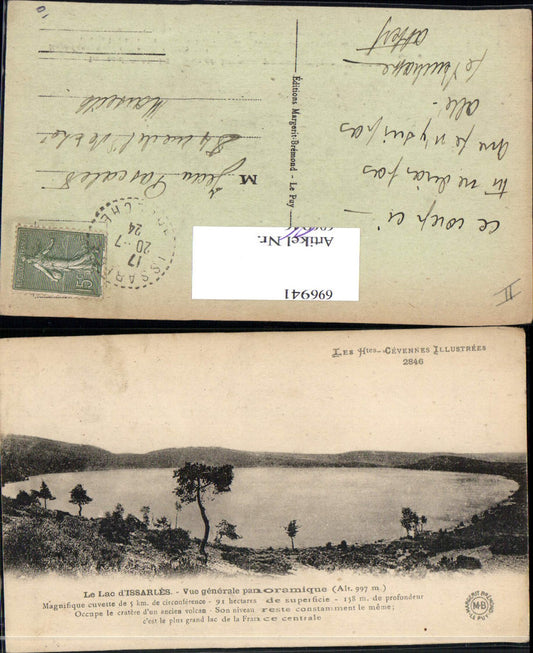 ce coup ci
tu ne diras pas
que je n'y suis pas
allé.
M Jean
Marseille
Éditions Margerit-Brémond - Le Puy
ISSARLÈS
17
20-7
24
15
Artikel Nr.
696941
II
LES Htes-CÉVENNES ILLUSTRÉES
2846
Le Lac d'ISSARLÈS. - Vue générale panoramique (Alt. 997 m.)
Magnifique cuvette de 5 km. de circonférence - 91 hectares de superficie - 138 m. de profondeur
Occupe le cratère d'un ancien volcan - Son niveau reste constamment le même;
c'est le plus grand lac de la France centrale
MARGERIT-BREMOND
M·B
LE PUY